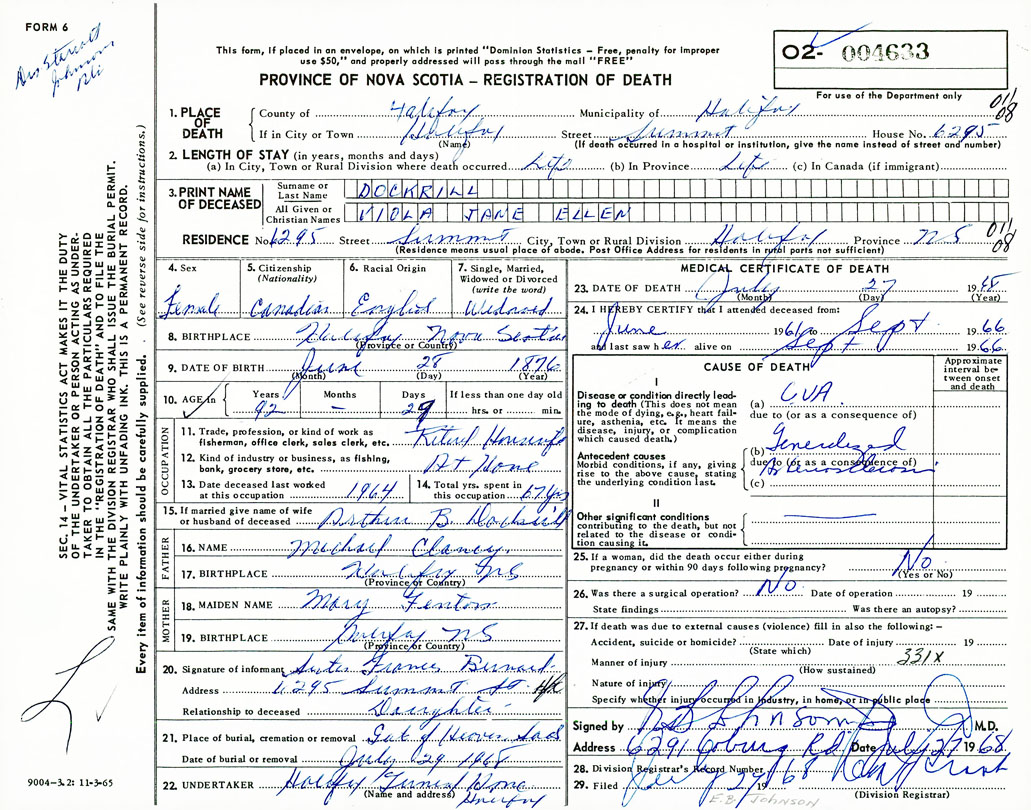 FORM 6
Drs Stewart
Johnson
This form, if placed in an envelope, on which is printed "Dominion Statistics – Free, penalty for improper
use $50," and properly addressed will pass through the mail "FREE"
PROVINCE OF NOVA SCOTIA – REGISTRATION OF DEATH
O2- 004633
For use of the Department only
SEC. 14 – VITAL STATISTICS ACT MAKES IT THE DUTY
OF THE UNDERTAKER OR PERSON ACTING AS UNDER-
TAKER TO OBTAIN ALL THE PARTICULARS REQUIRED
IN THE "REGISTRATION OF DEATH" AND TO FILE THE
SAME WITH THE DIVISION REGISTRAR WHO SHALL ISSUE THE BURIAL PERMIT.
WRITE PLAINLY WITH UNFADING INK. THIS IS A PERMANENT RECORD.
Every item of information should be carefully supplied. . (See reverse side for instructions.)
1. PLACE OF DEATH
County of Halifax Municipality of Halifax 011/08
If in City or Town Halifax Street Summit House No. 6295
(Name) (If death occurred in a hospital or institution, give the name instead of street and number)
2. LENGTH OF STAY (in years, months and days)
(a) In City, Town or Rural Division where death occurred Life (b) In Province Life (c) In Canada (if immigrant)
3. PRINT NAME OF DECEASED
Surname or Last Name DOCKRILL
All Given or Christian Names VIOLA JANE ELLEN
RESIDENCE No. 6295 Street Summit City, Town or Rural Division Halifax Province NS 011/08
(Residence means usual place of abode. Post Office Address for residents in rural parts not sufficient)
4. Sex Female
5. Citizenship (Nationality) Canadian
6. Racial Origin English
7. Single, Married, Widowed or Divorced (write the word) Widowed
8. BIRTHPLACE Halifax Nova Scotia
(Province or Country)
9. DATE OF BIRTH June 28 1876
(Month) (Day) (Year)
10. AGE in Years 92 Months – Days 29 If less than one day old hrs. or min.
OCCUPATION
11. Trade, profession or kind of work as fisherman, office clerk, sales clerk, etc. Retired Housewife
12. Kind of industry or business, as fishing, bank, grocery store, etc. At Home
13. Date deceased last worked at this occupation 1964
14. Total yrs. spent in this occupation 67 yrs
15. If married give name of wife or husband of deceased Arthur B. Dockrill
FATHER
16. NAME Michael Clancy
17. BIRTHPLACE Halifax NS
(Province or Country)
MOTHER
18. MAIDEN NAME Mary Fenton
19. BIRTHPLACE Halifax NS
(Province or Country)
20. Signature of informant Sister Frances Bernard
Address 6295 Summit St. Hfx
Relationship to deceased Daughter
21. Place of burial, cremation or removal Gate of Heaven Sack
Date of burial or removal July 29 1968
22. UNDERTAKER Halifax Funeral Home
(Name and address) Halifax
9004-3.2: 11-3-65
MEDICAL CERTIFICATE OF DEATH
23. DATE OF DEATH July 27 1968
(Month) (Day) (Year)
24. I HEREBY CERTIFY that I attended deceased from:
June 1961 to Sept 1966
and last saw her alive on Sept 1966
CAUSE OF DEATH
Approximate interval between onset and death
I
Disease or condition directly leading to death (This does not mean the mode of dying, e.g., heart failure, asthenia, etc. It means the disease, injury, or complication which caused death.)
(a) CVA
due to (or as a consequence of)
Antecedent causes
Morbid conditions, if any, giving rise to the above cause, stating the underlying condition last.
(b) Generalized
due to (or as a consequence of)
Arteriosclerosis
(c)
II
Other significant conditions
contributing to the death, but not related to the disease or condition causing it.
25. If a woman, did the death occur either during pregnancy or within 90 days following pregnancy? No
(Yes or No)
26. Was there a surgical operation? No. Date of operation 19
State findings Was there an autopsy?
27. If death was due to external causes (violence) fill in also the following: –
Accident, suicide or homicide? Date of injury 19
(State which)
Manner of injury 331X
(How sustained)
Nature of injury
Specify whether injury occurred in industry, in home, or in public place
Signed by B D Johnson M.D.
Address 6291 Coburg Rd Date July 27 1968
28. Division Registrar's Record Number
29. Filed July 29 1968
(Division Registrar)
E.B. JOHNSON